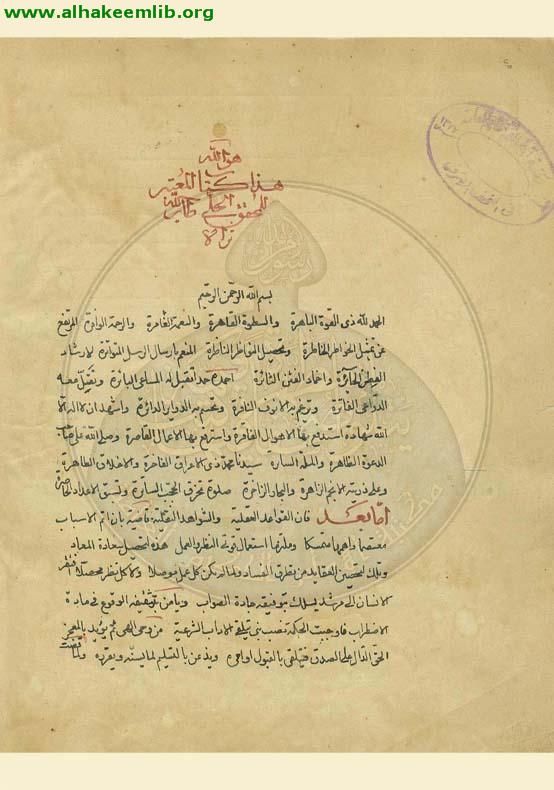 www.alhakeemlib.org
هو الله
هذا كتاب المعتبر
للمحقق الحلي طاب الله
ثراه
بسم الله الرحمن الرحيم
الحمد لله ذى القوة الباهرة والسطوة القاهرة والنعمة الغامرة والرحمة الوافرة المرتفع
عن تمثيل الخواطر الخاطرة وتحصيل النواظر الناظرة المنعم بارسال الرسل المتواترة لارشاد
الفطن الحايرة واخماد الفتن الثائرة احمده حمدا تقيل له المساعى البائرة وتقيل معه
الدواعى الفاترة وترغم به الانوف النافرة وتحسم به الدوابر الدائرة واشهد ان لا اله الا
الله شهادة استدفع بها الاهوال الفاقرة واسترفع بها الاعمال القاصرة وصلى الله على صاحب
الدعوة الظاهرة والملة السارة سيدنا محمد ذى الاعراق الفاخرة والاخلاق الطاهرة
وعلى ذريته الانجم الزاهرة والبحار الزاخرة صلوة تخرق الحجب الساترة وتسبق الاعداد الحاصرة
اما بعد فان القواعد العقلية والشواهد النقلية قاضية بان اتم الاسباب
معتصما واهمها متمسكا وملتزما استعمال قوتى النظر والعمل هذه لتحصيل سعادة المعاد
وتلك لتحصين العقايد من تطرق الفساد ولما لم يكن كل عمل موصلا ولا كل نظر محصلا افتقر
الانسان الى مرشد يسلك بتوفيقه جادة الصواب ويامن بتثقيفه الوقوع فى مادة
الاضطراب فاوجبت الحكمة نصب نبى يتلقى الاداب الشرعية من وحى الهى ثم يؤيد بالمعجز
الحق الدال على الصدق فيتلقى بالقبول اوامره ويذعن بالتسليم لما يسنه ويقرره ولما قضت